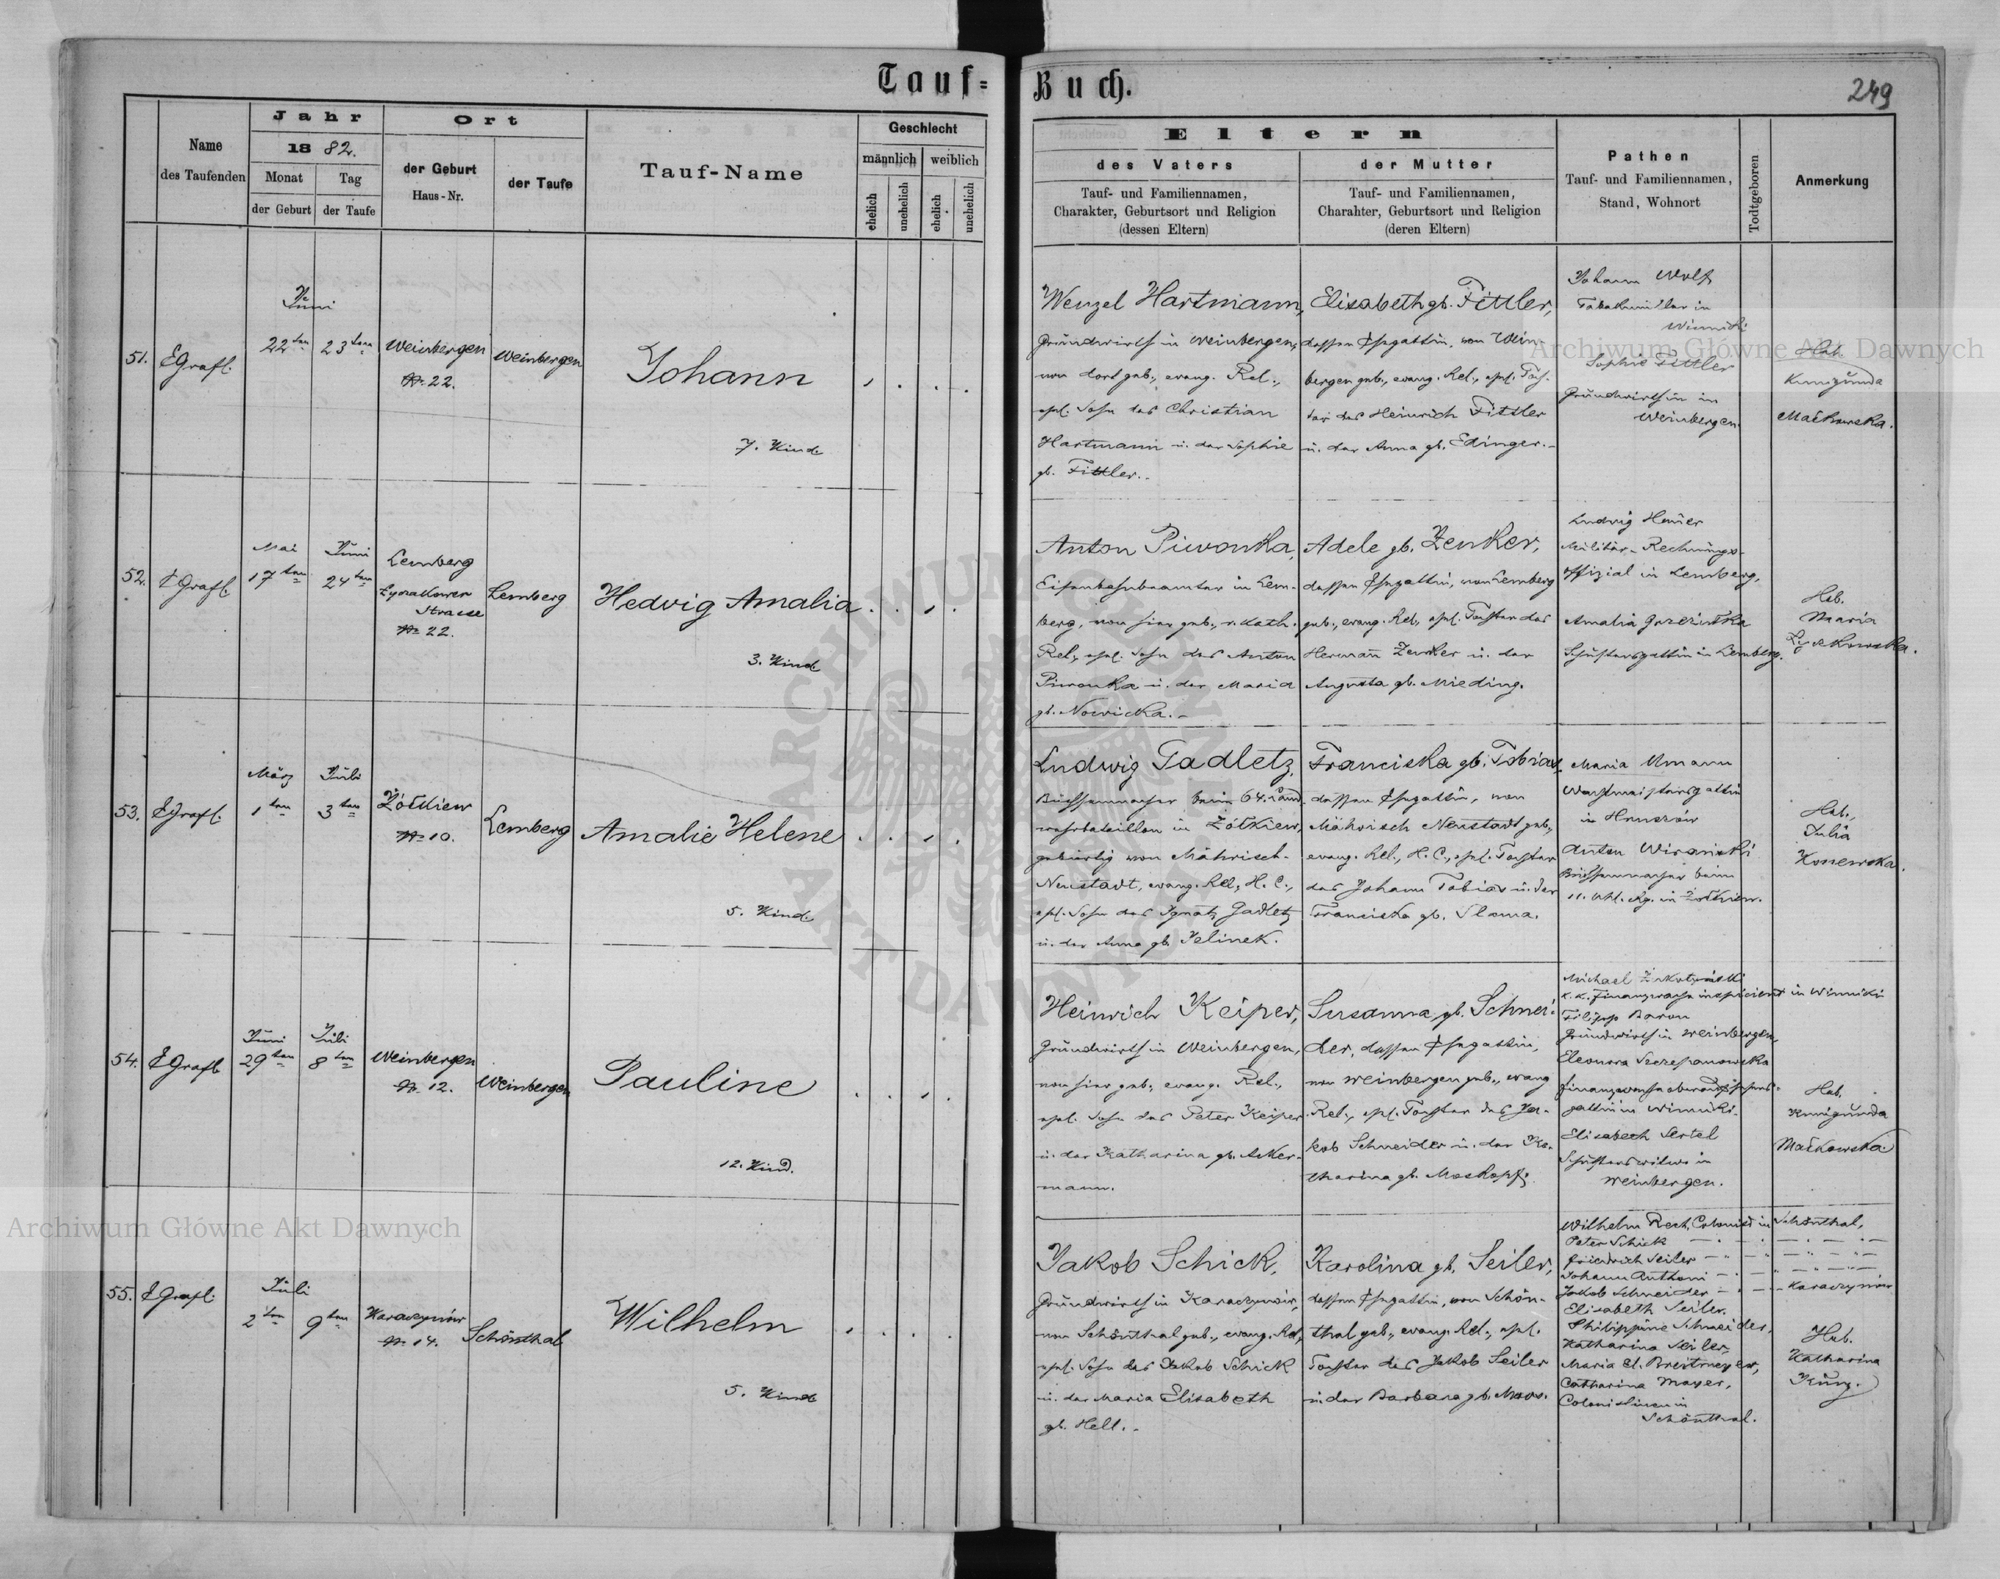 Tauf-Buch.
249
Name
des Taufenden
Jahr
18 82.
Monat
der Geburt
Tag
der Taufe
Ort
der Geburt
Haus-Nr.
der Taufe
Tauf-Name
Geschlecht
männlich
weiblich
ehelich
unehelich
ehelich
unehelich
Eltern
des Vaters
Tauf- und Familiennamen,
Charakter, Geburtsort und Religion
(dessen Eltern)
der Mutter
Tauf- und Familiennamen,
Charahter, Geburtsort und Religion
(deren Eltern)
Pathen
Tauf- und Familiennamen,
Stand, Wohnort
Todtgeboren
Anmerkung
51.
EGrafl.
Juni
22ten
23ten
Weinbergen
Nr. 22.
Weinbergen
Johann
7. Kind.
Wenzel Hartmann,
Grundwirth in Weinbergen,
von dort geb., evang. Rel.,
ehel. Sohn des Christian
Hartmann u. der Sophie
gb. Fittler.
Elisabeth gb. Fittler,
dessen Ehegattin, von Wein-
bergen geb., evang. Rel., ehel. Toch-
ter des Heinrich Fittler
u. der Anna gb. Edinger.
Johann Wolf
in
Winniki
Sophie Fittler
Grundwirthin in
Weinbergen.
Heb.
Kunigunda
Maćkowska.
52.
EGrafl.
Mai
17ten
Juni
24ten
Lemberg
Strasse
Nr. 22.
Lemberg
Hedvig Amalia
3. Kind.
Anton Piwonka,
Eisenbahnbeamter in Lem-
berg, von hier geb., r. kath.
Rel., ehel. Sohn des Anton
Piwonka u. der Maria
gb. Nowicka.
Adele gb. Zenker,
dessen Ehegattin, von Lemberg
geb., evang. Rel., ehel. Tochter des
Hermann Zenker u. der
Augusta gb. Mieding.
Ludwig
Militär-Rechnungs-
offizial in Lemberg,
Amalia
in Lemberg.
Heb.
Maria
53.
EGrafl.
März
1ten
Juli
3ten
Żółkiew
Nr. 10.
Lemberg
Amalie Helene
5. Kind.
Ludwig Gadletz,
Büchsenmacher beim 64. Land-
wehrbataillon in Żółkiew,
gebürtig von Mährisch-
Neustadt, evang. Rel., H. C.,
ehel. Sohn des Ignatz Gadletz
u. der Anna gb. Jelinek.
Franciska gb. Tobias,
dessen Ehegattin, von
Mährisch Neustadt geb.,
evang. Rel., H. C., ehel. Tochter
des Johann Tobias u. der
Franciska gb. Slama.
Maria Umann
Wachtmeistersgattin
in
Anton
Büchsenmacher beim
11. Uhl. Rg. in Żółkiew.
Heb.
Julia
54.
EGrafl.
Juni
29ten
Juli
8ten
Weinbergen
Nr. 12.
Weinbergen
Pauline
12. Kind.
Heinrich Keiper,
Grundwirth in Weinbergen,
von hier geb., evang. Rel.,
ehel. Sohn des Peter Keiper
u. der Katharina gb. Acker-
mann.
Susanna gb. Schnei-
der, dessen Ehegattin,
von Weinbergen geb., evang.
Rel., ehel. Tochter des Ja-
kob Schneider u. der Ka-
tharina gb. Moskopf.
Michael
k. k. in Winniki
Filipp Baron
Grundwirth in Weinbergen,
Eleonora
gattin in Winniki.
Elisabeth
Schusterswitwe in
Weinbergen.
Heb.
Kunigunda
Maćkowska
55.
EGrafl.
Juli
2ten
9ten
Karaczynów
Nr. 14.
Schönthal
Wilhelm
5. Kind
Jakob Schick,
Grundwirth in Karaczynów,
von Schönthal geb., evang. Rel.,
ehel. Sohn des Jakob Schick
u. der Maria Elisabeth
gb. Hell.
Karolina gb. Seiler,
dessen Ehegattin, von Schön-
thal geb., evang. Rel., ehel.
Tochter des Jakob Seiler
u. der Barbara gb. Moos.
Wilhelm Rech, Colonist in Schönthal,
Peter Schick
Friedrich Seiler
Johann Anthoni
Jakob Schneider Karaczynów
Elisabeth Seiler,
Philippine Schneider,
Katharina Seiler,
Maria El. Breitmeyer,
Catharina Mayer,
Colonistinen in
Schönthal.
Heb.
Katharina
Kurz.
Archiwum Główne Akt Dawnych
Archiwum Główne Akt Dawnych
ARCHIWUM GŁÓWNE AKT DAWNYCH